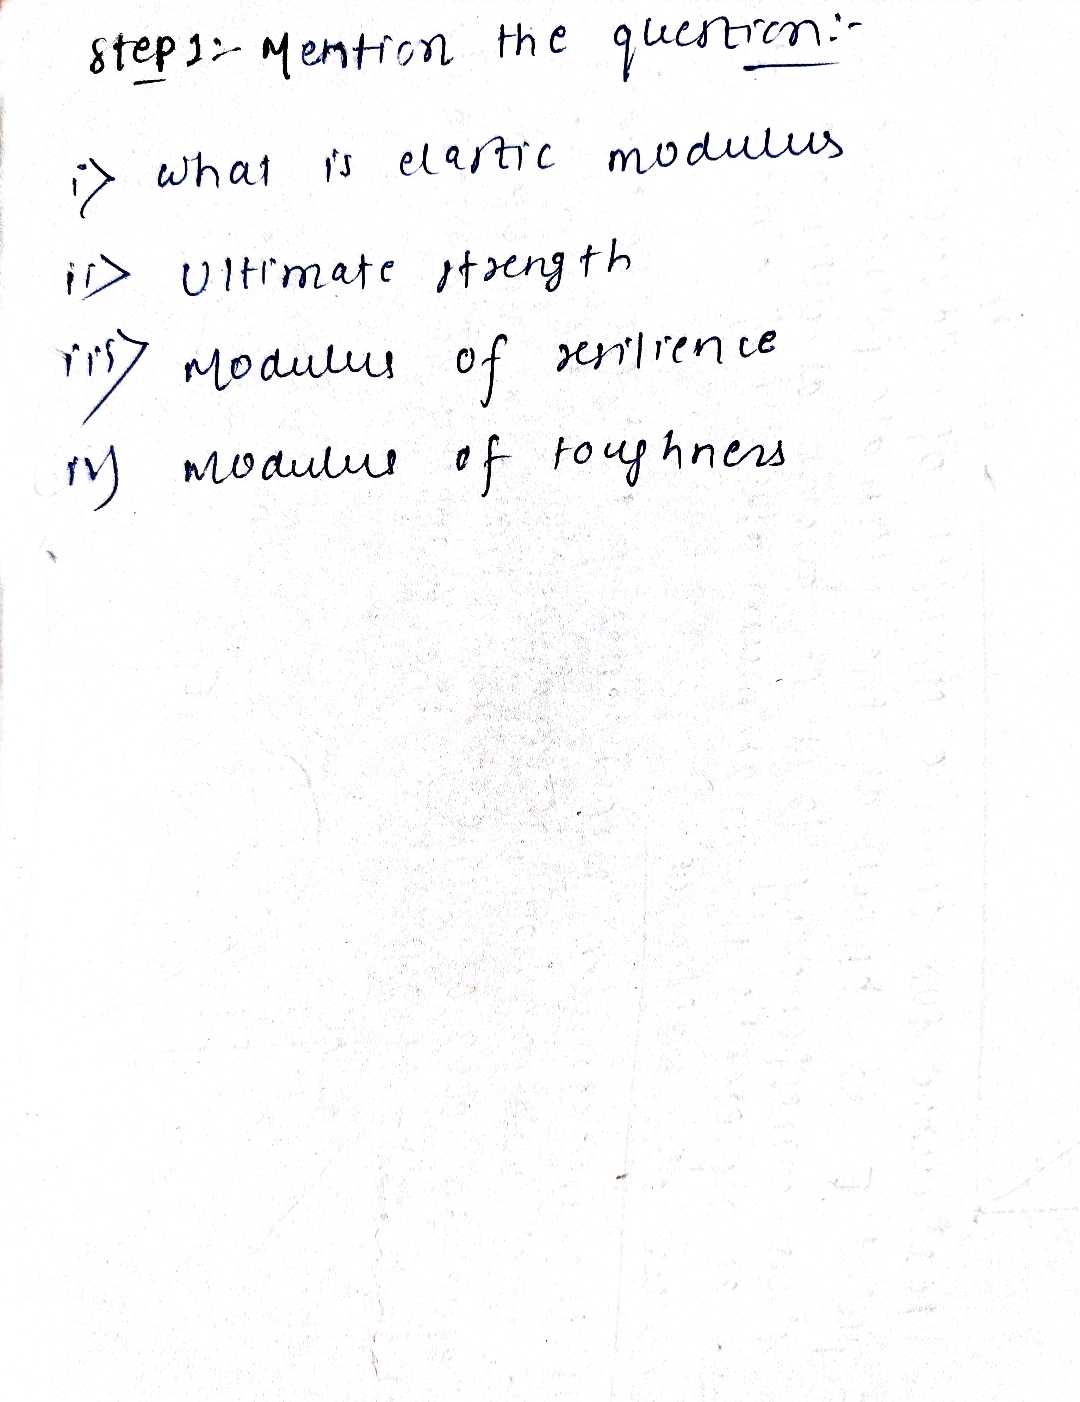 Step 1:- Mention the question:-
i> what is elastic modulus
ii> Ultimate strength
iii> Modulus of resilience
iv) Modulus of toughness